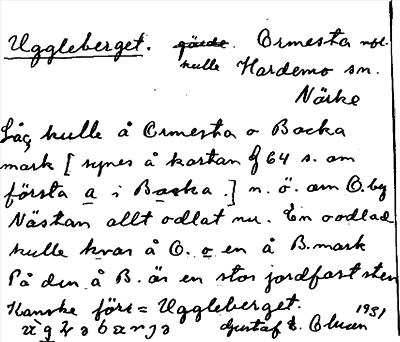 Uggleberget. gärde. Ormesta
kulle Hardemo sn.
Närke
Låg kulle å Ormesta o Backa
mark [synes å kartan f 64 s. om
första a i Backa.] n. ö. om O. by
Nästan allt odlat nu. En oodlad
kulle kvar å O. o en å B. mark
På den å B. är en stor jordfast sten
Kanske förr = Uggleberget.
1931
Gustaf